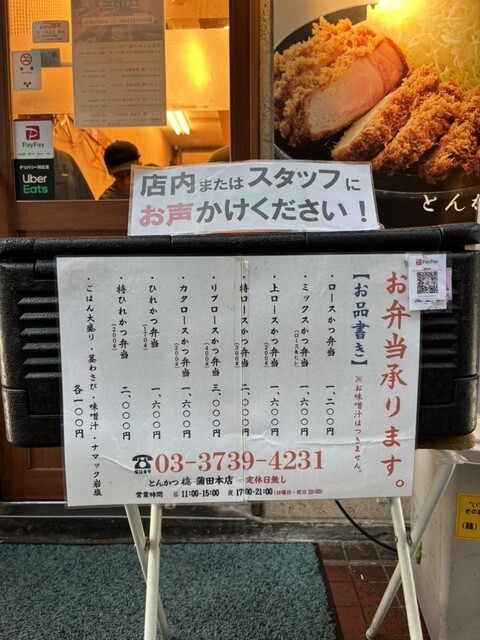 PayPay
デリバリー対応店
Uber
Eats
とんか
店内またはスタッフに
お声かけください！
PayPay
お弁当承ります。
【お品書き】※お味噌汁はつきません。
・ロースかつ弁当 一、二〇〇円
・ミックスかつ弁当 一、六〇〇円
・上ロースかつ弁当(200g) 一、六〇〇円
・特ロースかつ弁当(300g) 二、〇〇〇円
・リブロースかつ弁当(400g) 三、〇〇〇円
・カタロースかつ弁当(200g) 一、六〇〇円
・ひれかつ弁当(170g) 一、六〇〇円
・特ひれかつ弁当(200g) 二、〇〇〇円
・ごはん大盛り・茎わさび・味噌汁・ナマック岩塩 各一〇〇円
03-3739-4231
とんかつ 檍 蒲田本店 定休日無し
営業時間 昼 11:00-15:00 夜 17:00-21:00(日曜日・祝日 20:00)